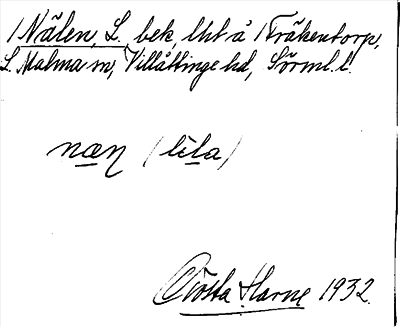 /Nälen, L. bek, lht å /Träkentorp,
L. Malma sn, Villåttinge hd, Sörml. l.
næŋ (lila)
Gösta Harne 1932.